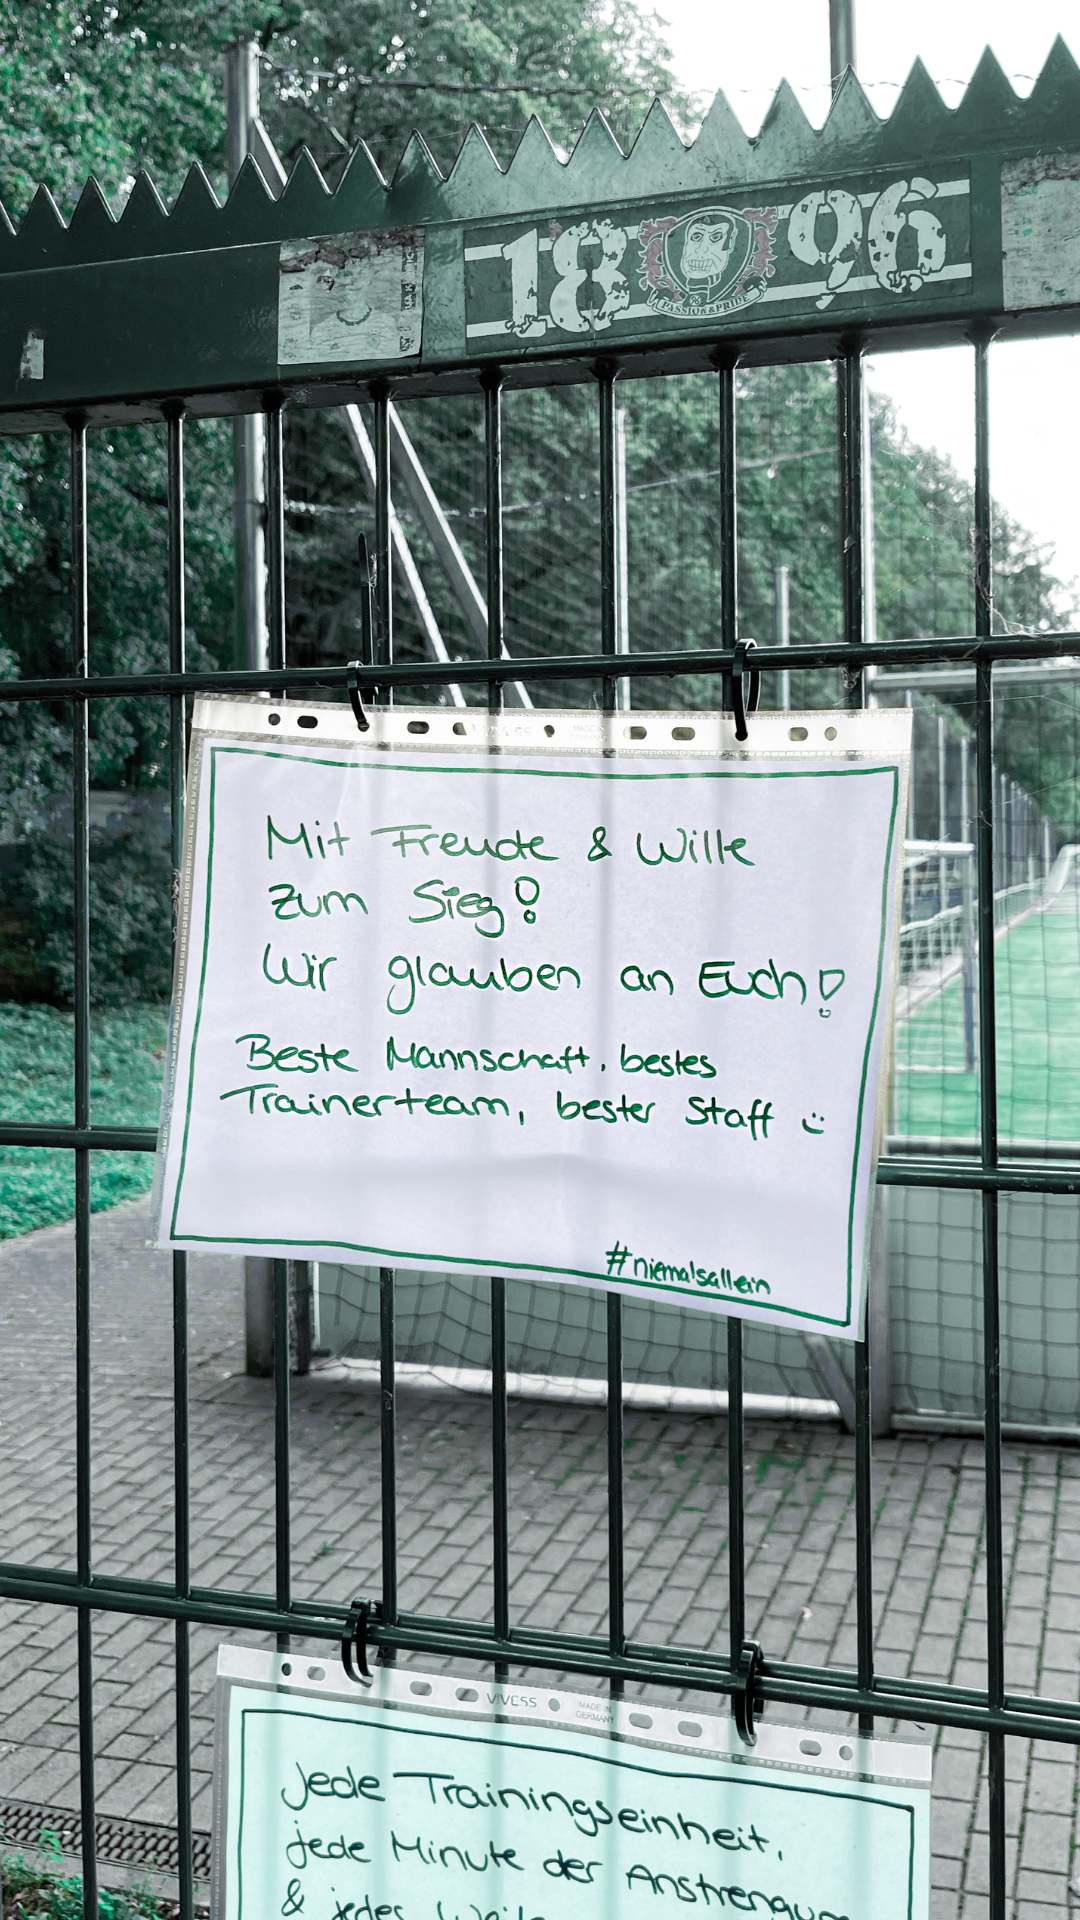 1896
PASSION & PRIDE
Mit Freude & Wille
zum Sieg!
Wir glauben an Euch!
Beste Mannschaft, bestes
Trainerteam, bester Staff :)
#niemalsallein
VIVESS
MADE IN
GERMANY
Jede Trainingseinheit,
jede Minute der
& jedes